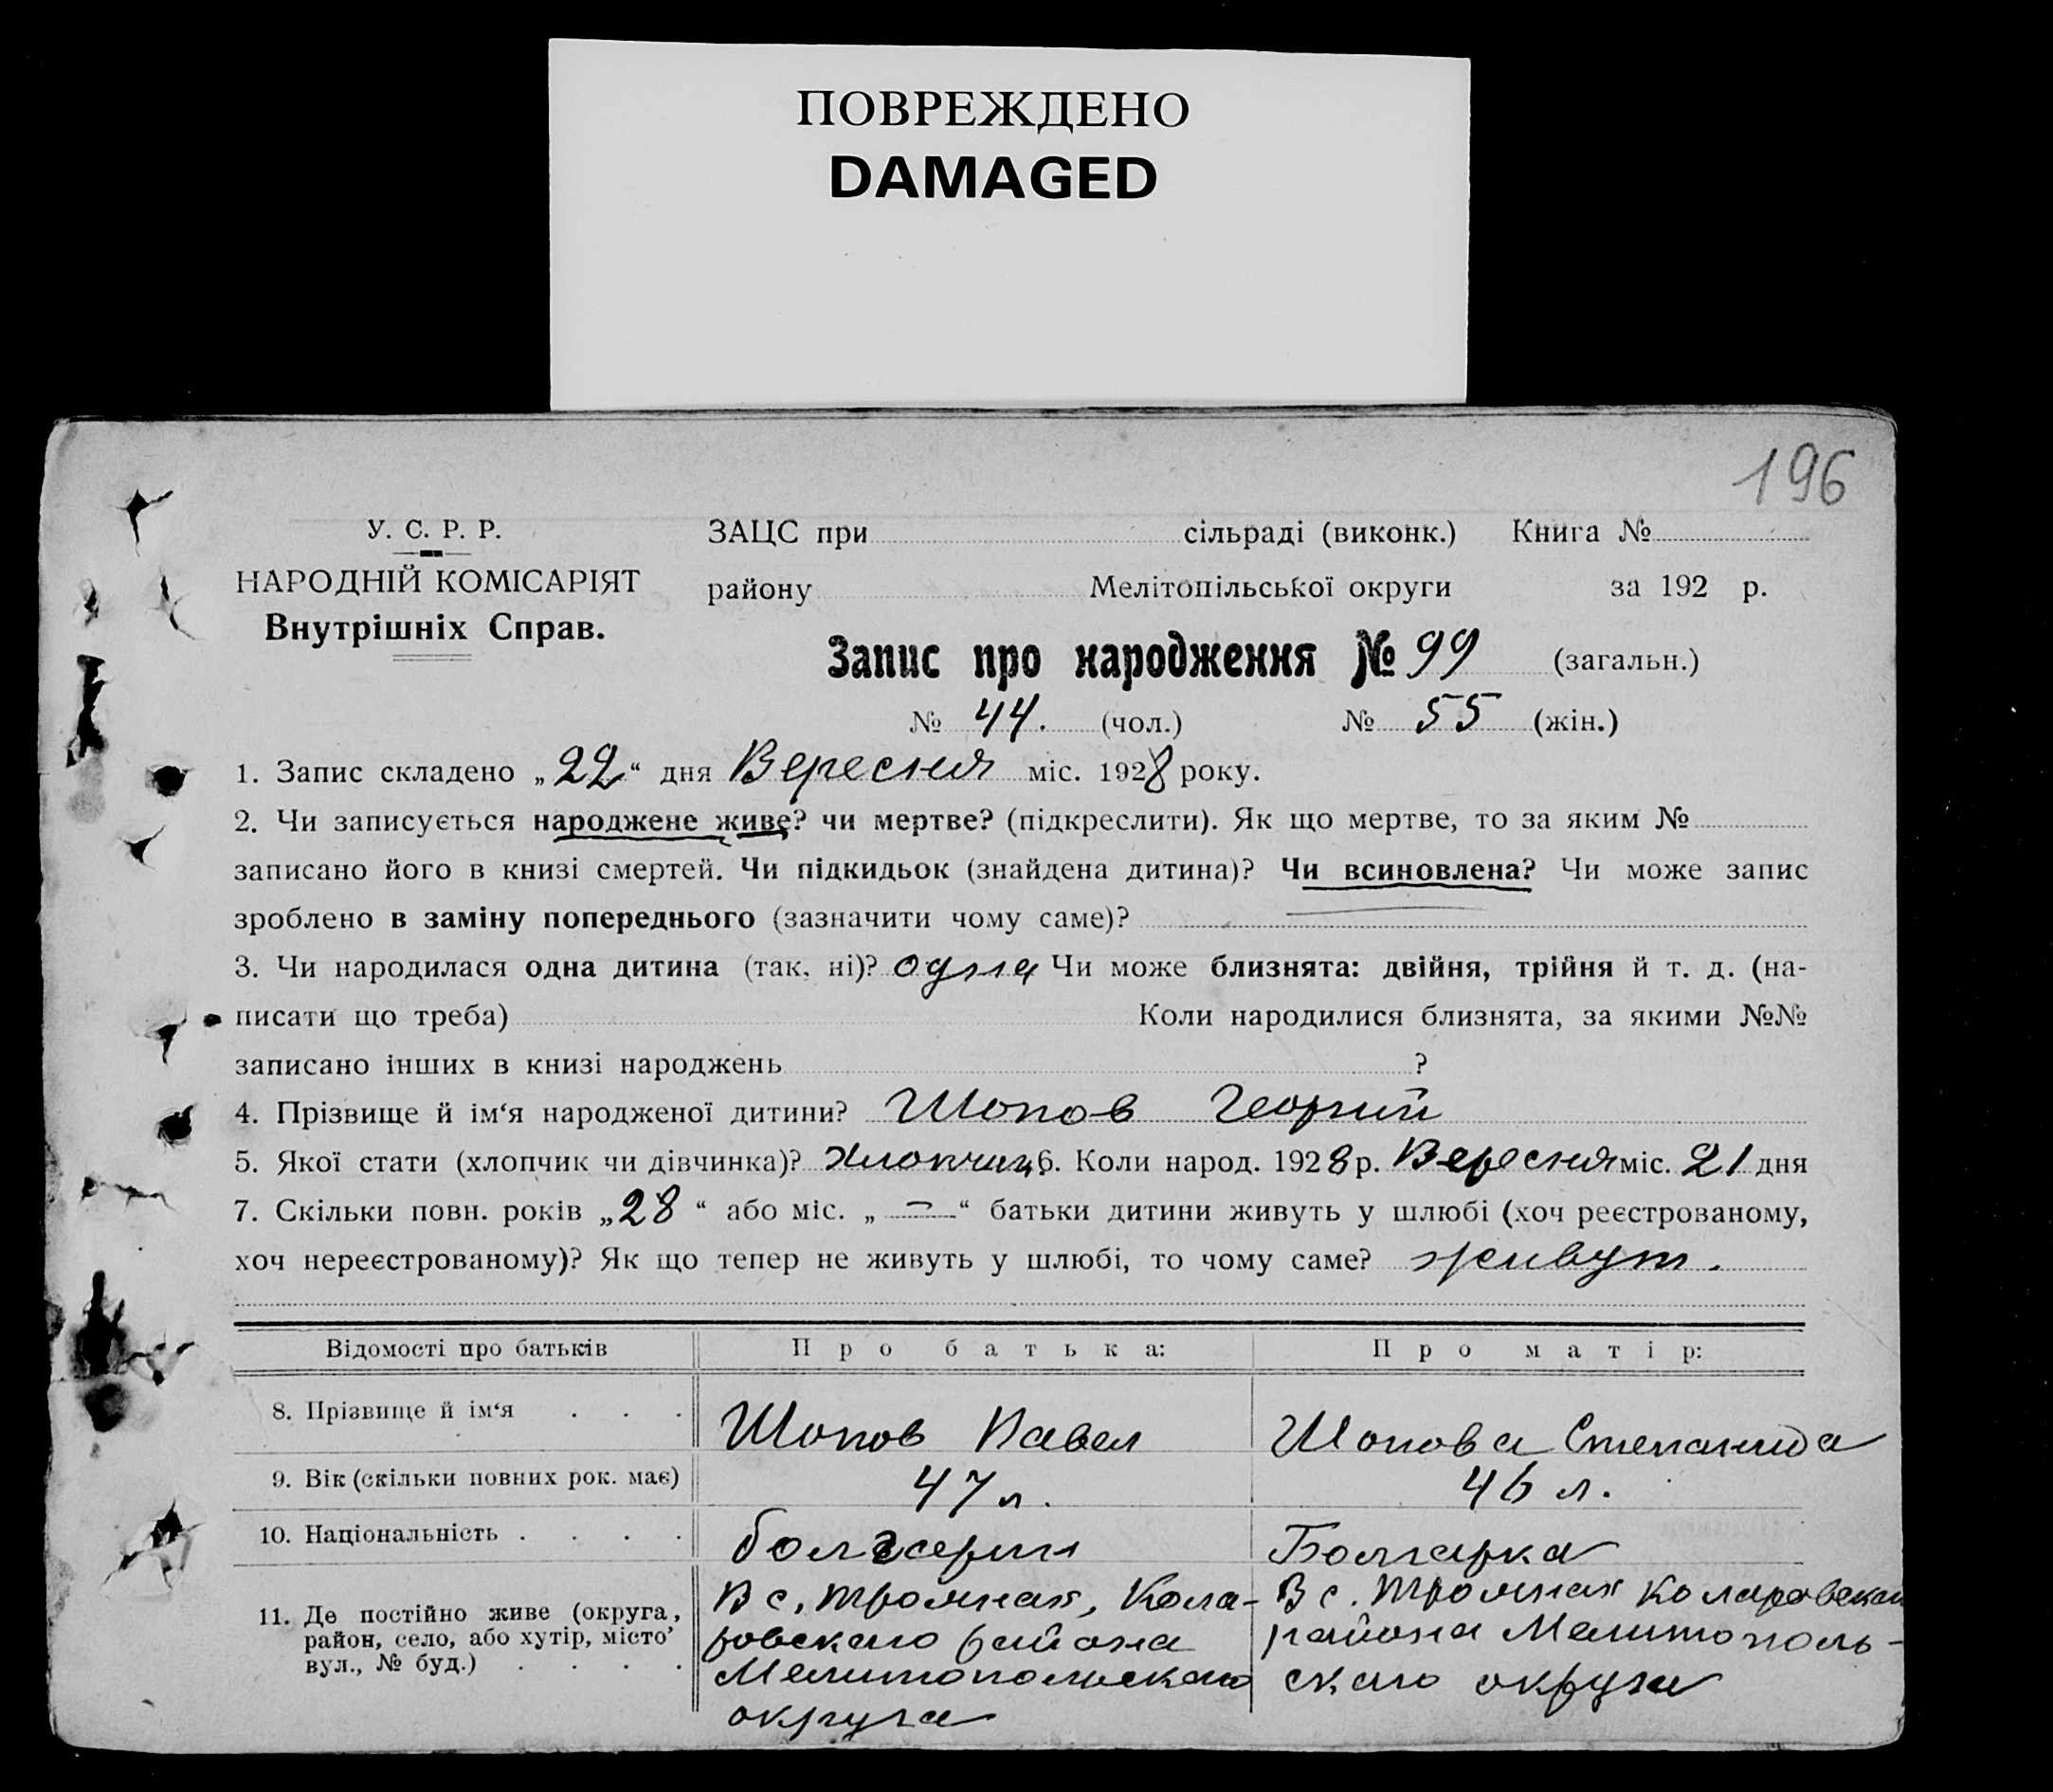 ПОВРЕЖДЕНО
DAMAGED
196
У. С. Р. Р.
НАРОДНІЙ КОМІСАРІЯТ
Внутрішніх Справ.
ЗАЦС при сільраді (виконк.) Книга №
району Мелітопільської округи за 192 р.
Запис про народження № 99 (загальн.)
№ 44. (чол.) № 55 (жін.)
1. Запис складено „22“ дня Вересня міс. 1928 року.
2. Чи записується народжене живе? чи мертве? (підкреслити). Як що мертве, то за яким №
записано його в книзі смертей. Чи підкидьок (знайдена дитина)? Чи всиновлена? Чи може запис
зроблено в заміну попереднього (зазначити чому саме)?
3. Чи народилася одна дитина (так, ні)? одна Чи може близнята: двійня, трійня й т. д. (на-
писати що треба) Коли народилися близнята, за якими №№
записано інших в книзі народжень ?
4. Прізвище й ім‘я народженої дитини? Шопов Георгий
5. Якої стати (хлопчик чи дівчинка)? Хлопчик 6. Коли народ. 1928 р. Вересня міс. 21 дня
7. Скільки повн. років „28“ або міс. „—“ батьки дитини живуть у шлюбі (хоч реєстрованому,
хоч нереєстрованому)? Як що тепер не живуть у шлюбі, то чому саме? живут.
Відомості про батьків Про батька: Про матір:
8. Прізвище й ім‘я . . . Шопов Павел Шопова Степанида
9. Вік (скільки повних рок. має) 47 л. 46 л.
10. Національність . . . . болгарин Болгарка
11. Де постійно живе (округа, район, село, або хутір, місто’ вул., № буд.) . . . .
В с. Трояная, Кола-
ровскаго района
Мелитопольскаго
округа
В с. Трояная Коларовскаго
района Мелитополь-
скаго округа